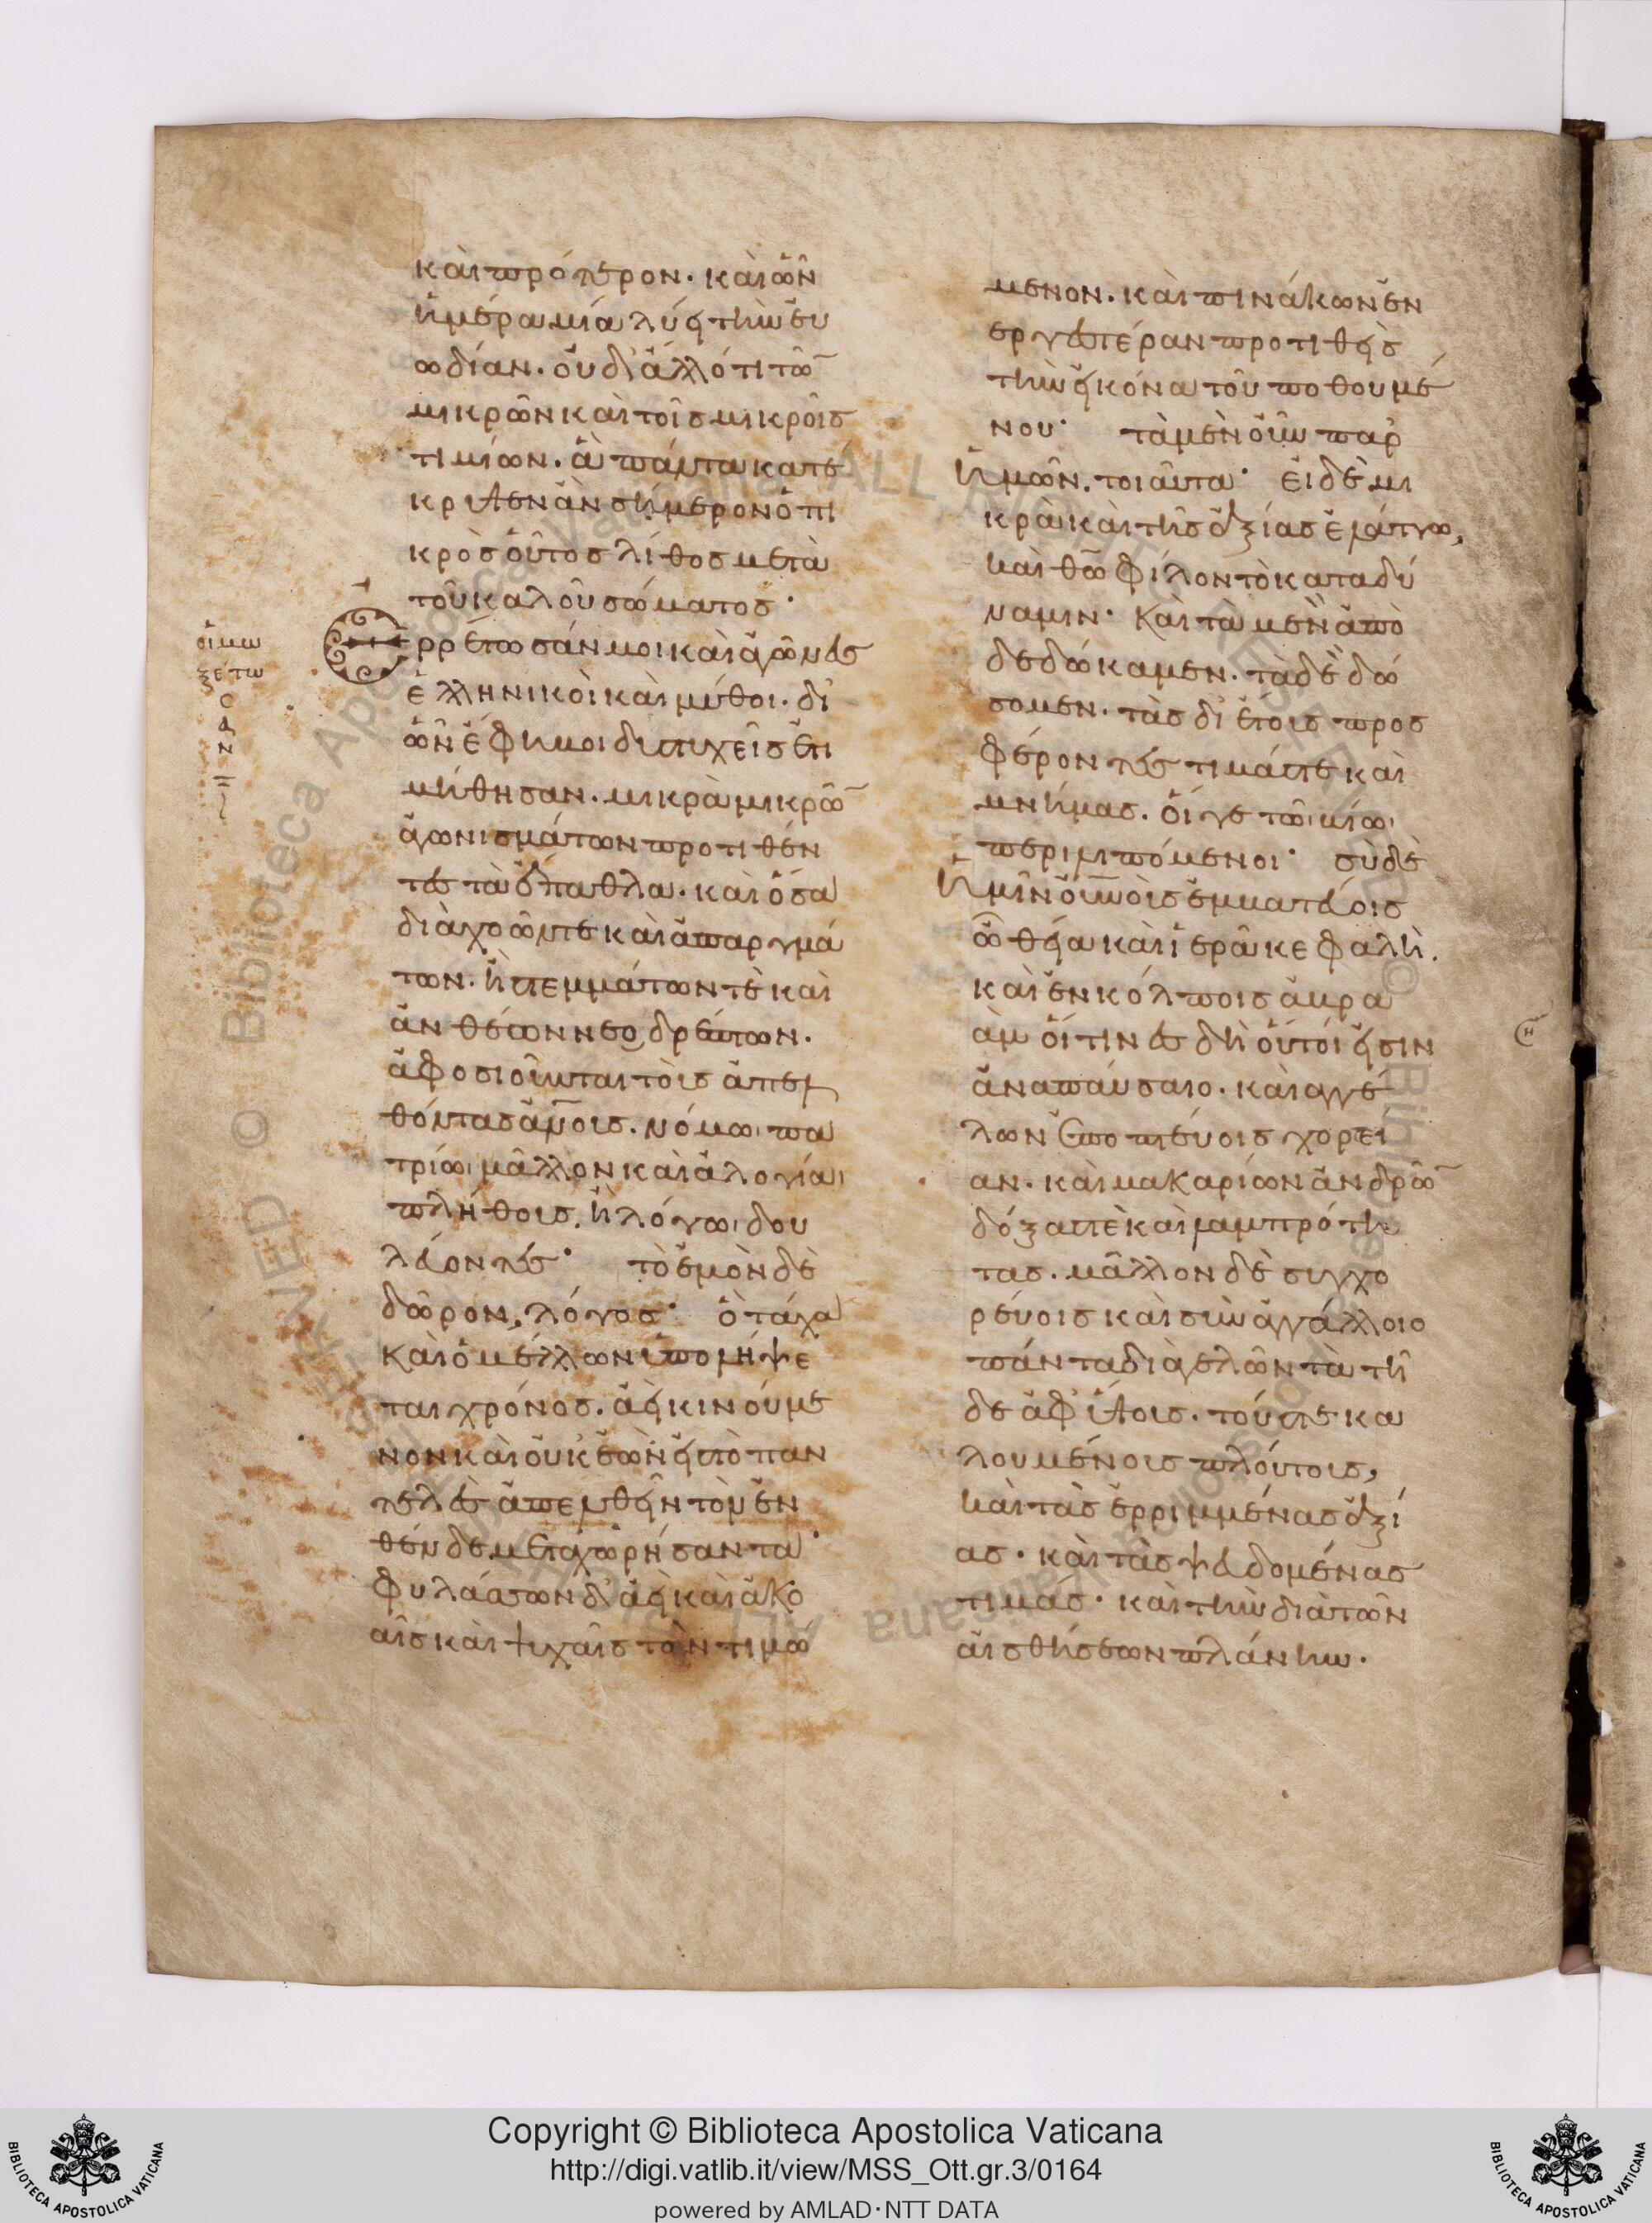 καὶ πρότερον· καὶ ὧν
ἡμέρα μία λύει τὴν εὐ
ωδίαν· οὐδ' ἄλλό τι τῶ
μικρῶν καὶ τοῖς μικροῖς
τιμίων· ἃ πάντα κατέ
κρυψεν ἂν σήμερον ὁ πι
κρὸς οὗτος λίθος μετὰ
τοῦ καλοῦ σώματος·
Ἐρρέτωσάν μοι καὶ ἀγῶνες
ἑλληνικοὶ καὶ μύθοι· δι'
ὧν ἔφηβοι δυστυχεῖς ἐτι
μήθησαν· μικρὰ μικρῶ
ἀγωνισμάτων προτιθέν
τες τὰ ἔπαθλα· καὶ ὅσα
διὰ χοῶν τε καὶ ἀπαργμά
των· ἢ στεμμάτων τὲ καὶ
ἀνθέων νεοδρέπτων·
ἀφοσιοῦνται τοῖς ἀπελ
θόντας ἀνοις· νόμω πα
τρίω μᾶλλον καὶ ἀλογία
πλήθους, ἢ λόγω δου
λεύοντες· τὸ ἐμὸν δὲ
δῶρον, λόγος· ὃ τάχα
καὶ ὁ μέλλων ὑπολήψε
ται χρόνος· ἀεὶ κινούμε
νον καὶ οὐκ ἐῶν εἰς τὸ παν
τελὲς ἀπελθεῖν τὸν ἐν
θένδε μεταχωρήσαντα·
φυλάσσων δ' ἀεὶ καὶ ἀκο
αῖς καὶ ψυχαῖς τὸν τιμώ
οἰμω
ξέτω
σαν
μενον· καὶ πινάκων ἐν
εργεστέραν προτιθεὶς
τὴν εἰκόνα τοῦ ποθουμέ
νου· τὰ μὲν οὖν παρ'
ἡμῶν, τοιαῦτα· εἰ δὲ μι
κρὰ καὶ τῆς ἀξίας ἐλάττω,
καὶ θῶ φίλον τὸ κατὰ δύ
ναμιν· καὶ τὰ μὲν ἀπὸ
δεδώκαμεν· τὰ δὲ δώ
σομεν· τὰς δι' ἔτους προσ
φέροντες τιμάς τε καὶ
μνήμας· οἵ γε τῶ βίω
περιλιπόμενοι· σὺ δὲ
ἡμῖν οὐνοὺς ἐμβατεύοις
ὦ θεία καὶ ἱερὰ κεφαλή·
καὶ ἐν κόλποις ἀβρα
ὰμ οἵτινες δὴ οὗτοί εἰσιν
ἀναπαύσαιο· καὶ ἀγγέ
λων ἐποπτεύοις χορεί
αν· καὶ μακαρίων ἀνδρῶ
δόξας τὲ καὶ λαμπρότη
τας· μᾶλλον δὲ συγχο
ρεύοις καὶ συν ἀγάλλοιο
πάντα διαγελῶν τὰ τῆ
δε ἀφ' ὕψους· τούς τε κα
λουμένους πλούτους,
καὶ τὰς ἐρριμμένας ἀξί
ας· καὶ τὰς ψευδομένας
τιμάς· καὶ τὴν διὰ τῶν
αἰσθήσεων πλάνην·
Biblioteca Apostolica Vaticana
Copyright © Biblioteca Apostolica Vaticana
http://digi.vatlib.it/view/MSS_Ott.gr.3/0164
powered by AMLAD·NTT DATA
BIBLIOTECA APOSTOLICA VATICANA
BIBLIOTECA APOSTOLICA VATICANA